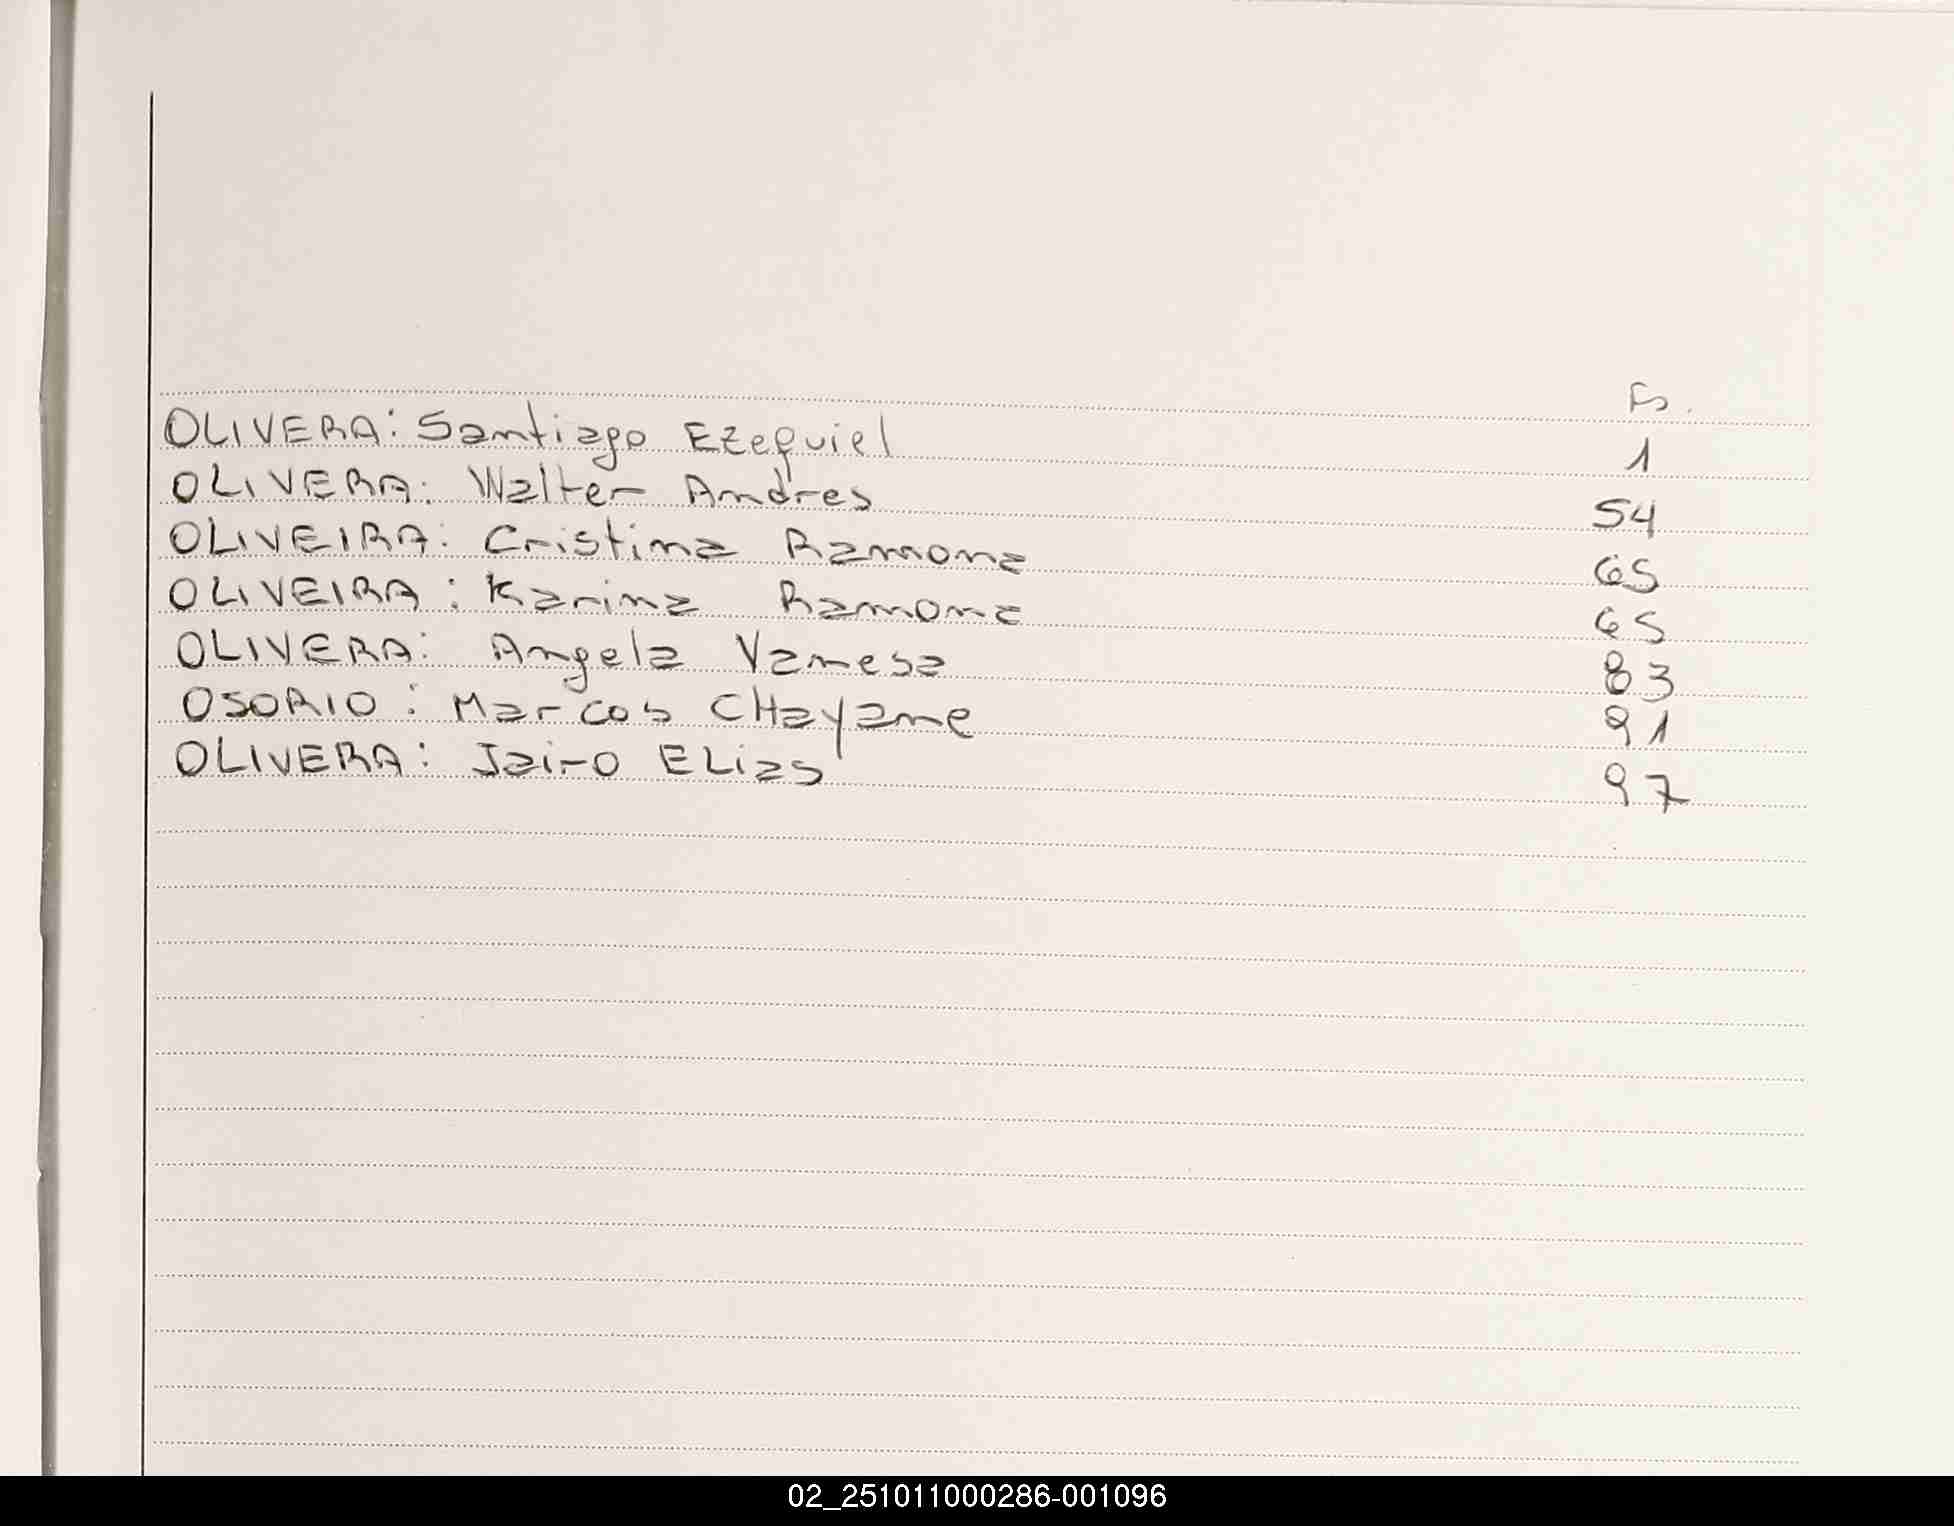 Fs.
OLIVERA: Santiago Ezequiel 1
OLIVERA: Walter Andres 54
OLIVEIRA: Cristina Ramona 65
OLIVEIRA: Karina Ramona 65
OLIVERA: Angela Vanesa 83
OSORIO: Marcos CHayane 91
OLIVERA: Jairo ELias 97
02_251011000286-001096